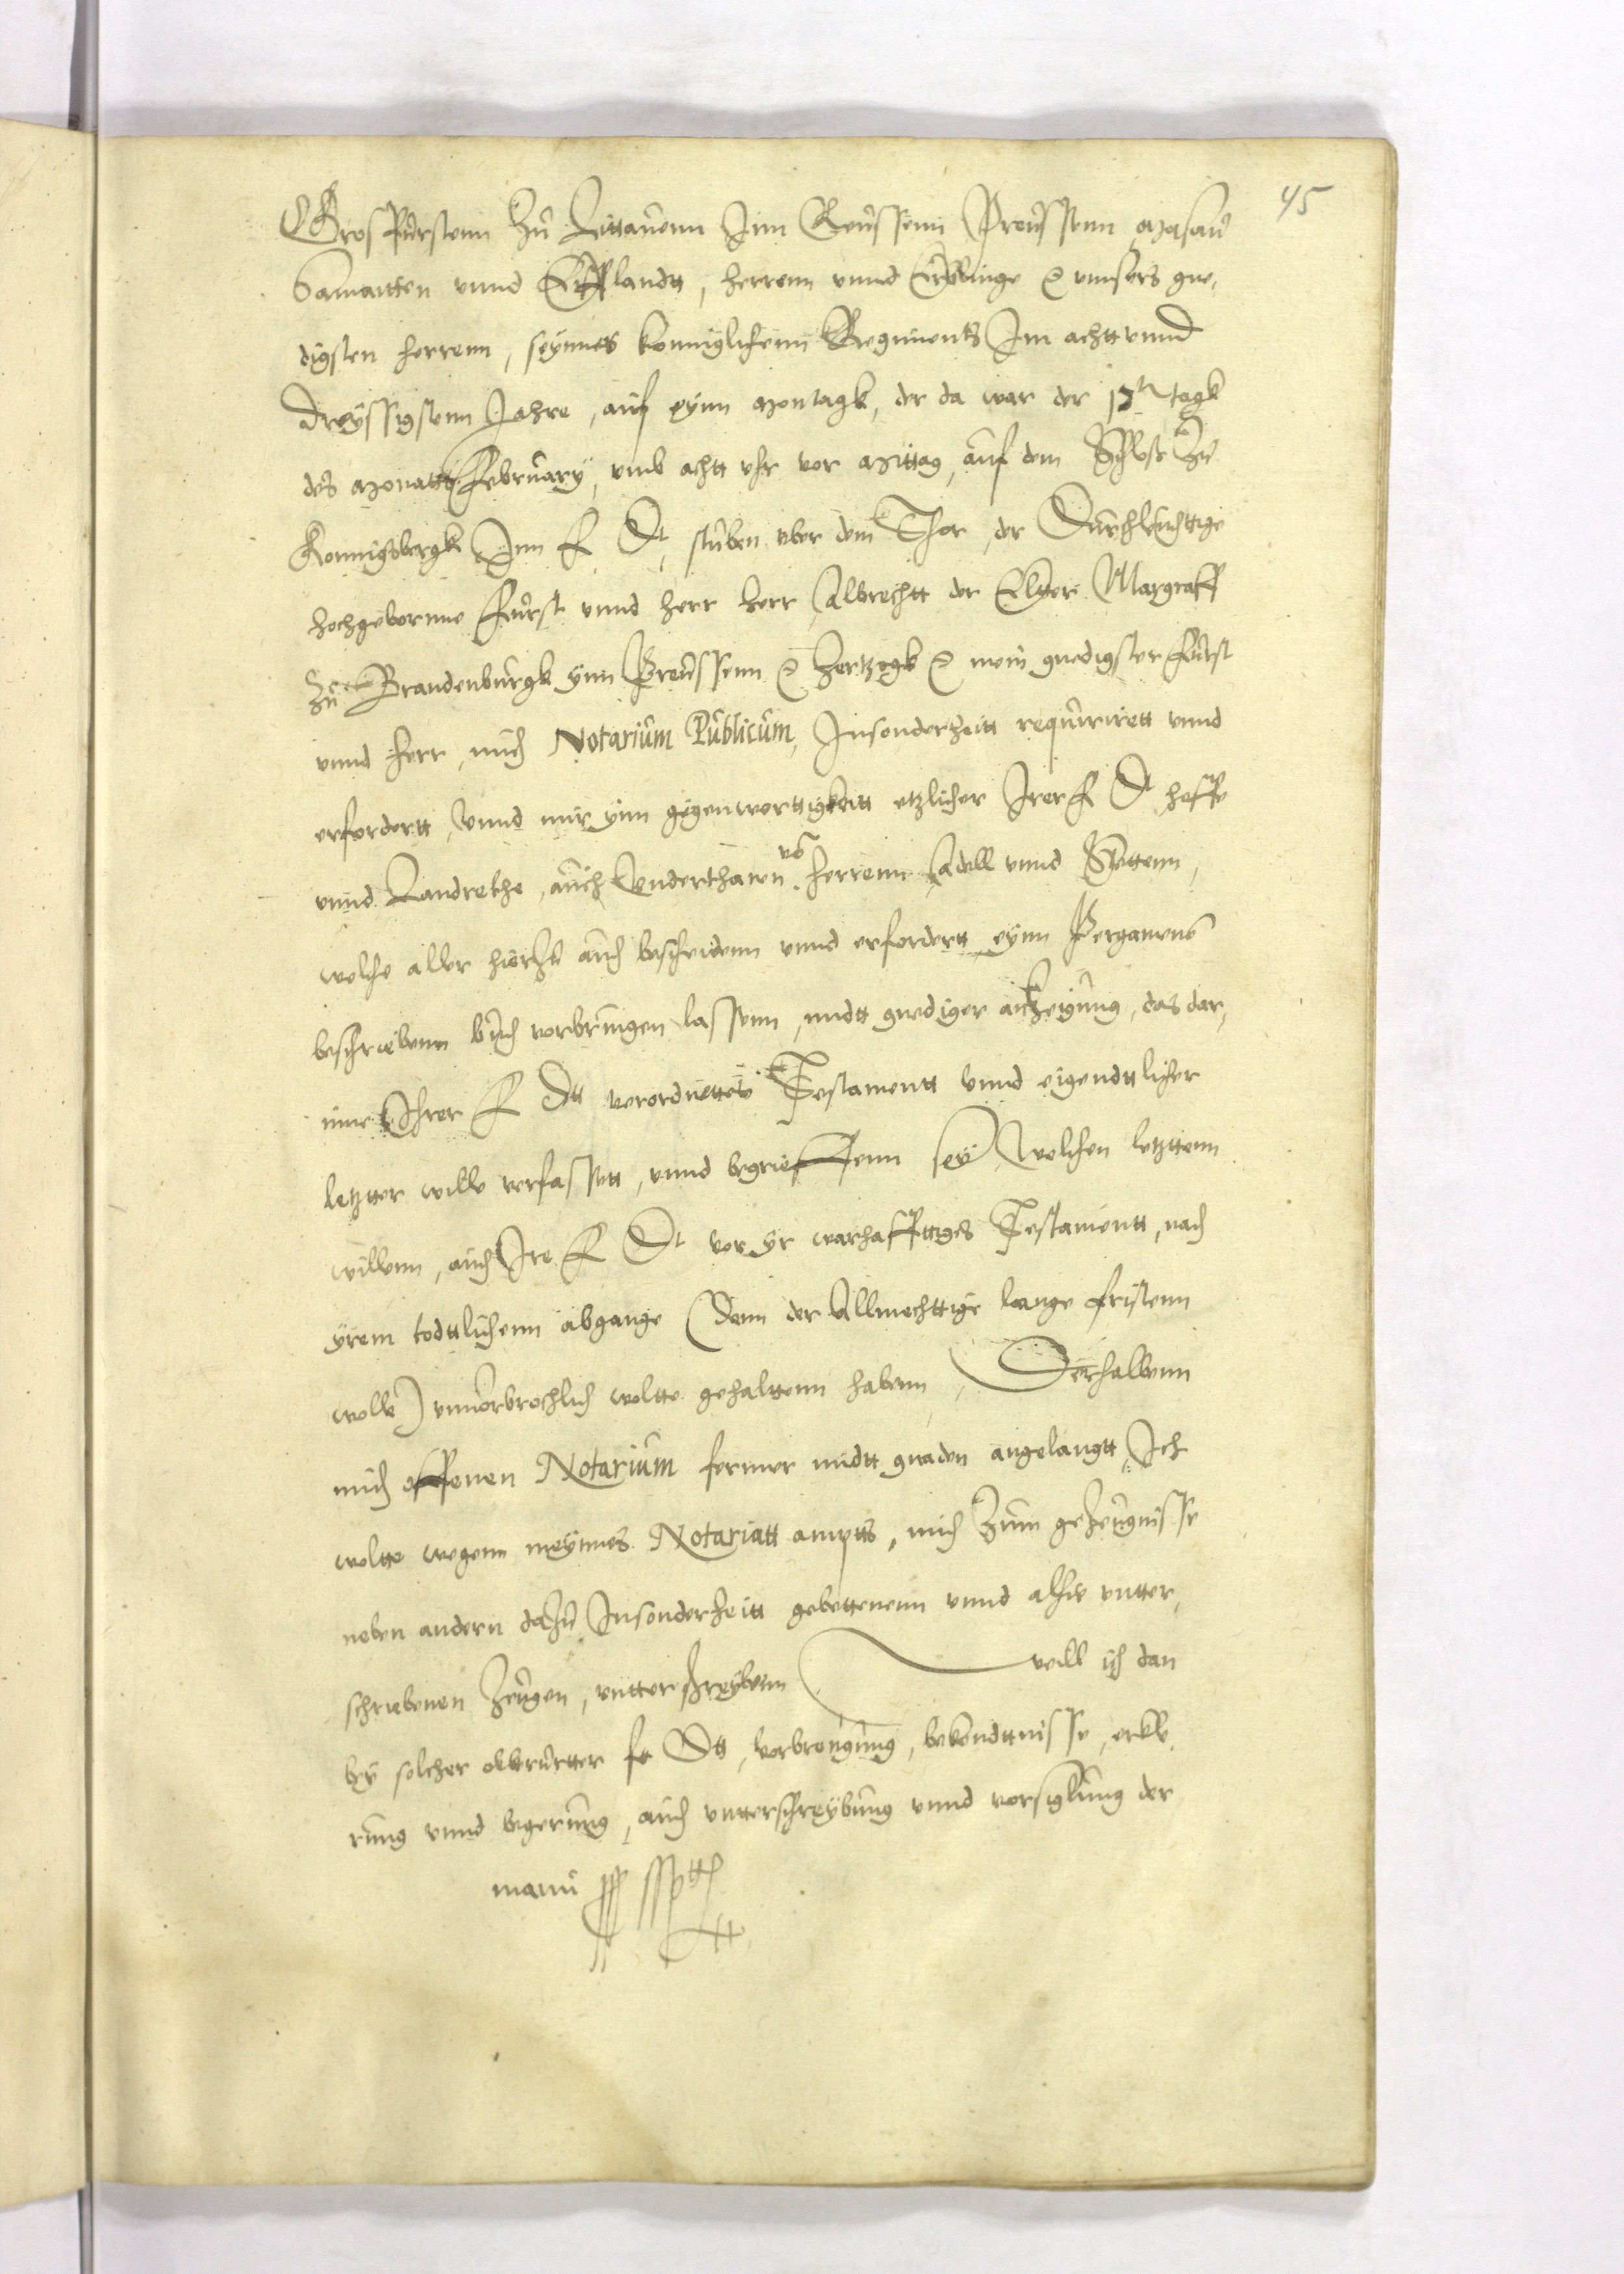 45
Grosfürstenn zu Littauenn Inn Reussenn Preussenn Masaw
Samaitten vnnd Liefflandtt, herrenn vnnd Erblinge etc vnnsers gne,
digsten herrenn, seynnes konniglichenn Regiments Im achtt vnnd
dreyssigstenn Jahre, auf eynn Montagk, der da war der 17t tagk
des Monatts February, vmb achtt vhr vor Mittag, auf dem Schlos zu
Konnigsbergk Inn F Dt stuben vber dem Thor, der Durchleuchttige
Hochgebornne Fürst vnnd herr Herr Albrechtt der Elter Marggraff
zu Brandenburgk ynn Preussenn etc Hertzogk etc mein gnedigster Fürst
vnnd herr, mich Notarium Publicum, Insonderheitt requirirett vnnd
erfordertt, Vnnd mir ynn gegenwerttigkeitt etzlicher Irer F Dt Hoffe
vnnd Landrethe, auch Vnderthanen vo herrenn Adell vnnd Stettenn,
welche aller hierzu auch bescheidenn vnnd erfordertt, eynn Pergamens
beschriebenn buch vorbringen lassenn, midtt gnediger anzeigung, das dar,
inne Ihrer F Dtt verordnettes Testamentt vnnd eigendttlicher
letztter wille verfassett, vnnd begrieffenn sey, Welchen letzttenn
willenn, auch Ire F Dt vor yr warhafftiges Testamentt, nach
yrem todttlichenn abgange (Denn der Allmechttige lange fristenn
wolle) vnnorbrochlich woltte gehalttenn habenn, Derhalbenn
mich offenen Notarium ferner midtt gnaden angelangtt, Ich
woltte wegenn meynnes Notariatt amptts, mich zum gezeugnisse
neben andern dazu Insonderheitt gebettenenn vnnd alhie vntter,
schriebenen Zeugen, vntterschreybenn will ich dan
bey solcher obberurtter ft Dtt, vorbrengung, bekendttnisse, erkle,
rung vnnd begerung, auch vntterschreybung vnnd vorsiglung der
manu